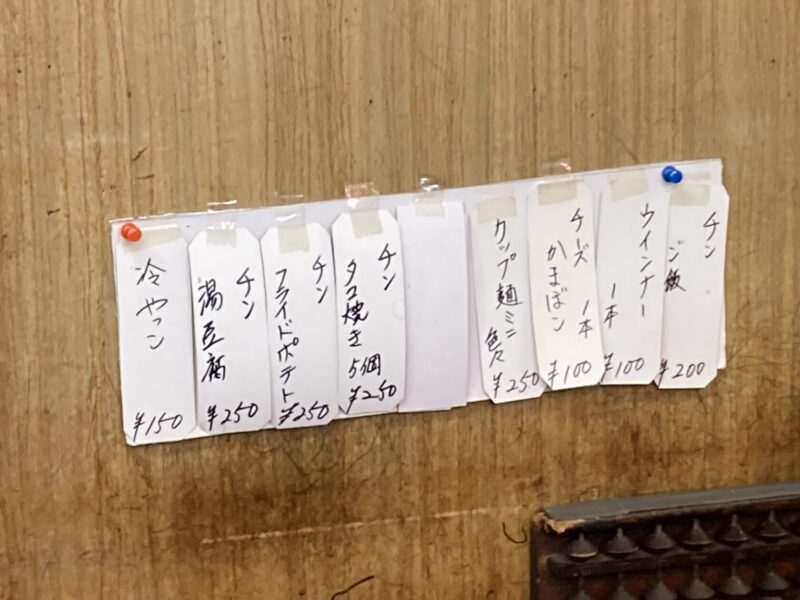 チン
ご飯
¥200
ウインナー
1本
¥100
チーズ
かまぼこ
1本
¥100
カップ麺ミニ
色々
¥250
チン
タコ焼き
5個
¥250
チン
フライドポテト
¥250
チン
湯豆腐
¥250
冷やっこ
¥150